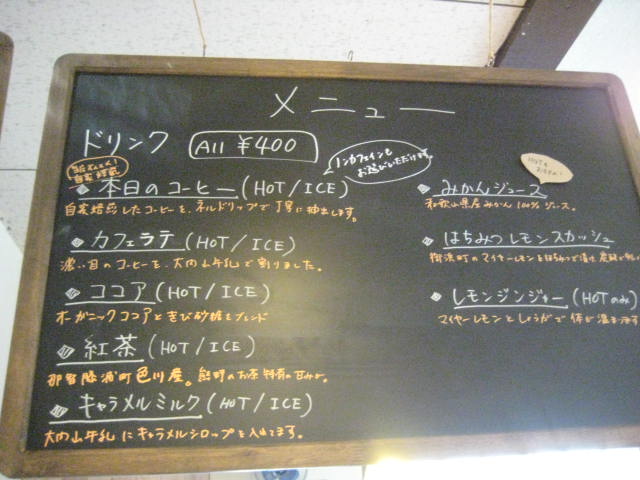 メニュー
ドリンク All ¥400
ノンカフェインも
お選びいただけます。
自家焙煎
本日のコーヒー (HOT/ICE)
自家焙煎したコーヒーを、ネルドリップで丁寧に抽出します。
カフェラテ (HOT/ICE)
濃い目のコーヒーを、大内山牛乳で割りました。
ココア (HOT/ICE)
オーガニックココアときび砂糖をブレンド
紅茶 (HOT/ICE)
那智勝浦町色川産。熊野のお茶特有の甘みを。
キャラメルミルク (HOT/ICE)
大内山牛乳にキャラメルシロップを入れてます。
HOTも
みかんジュース
和歌山県産みかん100%ジュース。
はちみつレモンスカッシュ
御浜町のマイヤーレモンをはちみつで漬け
レモンジンジャー (HOTのみ)
マイヤーレモンとしょうがで体が温まります